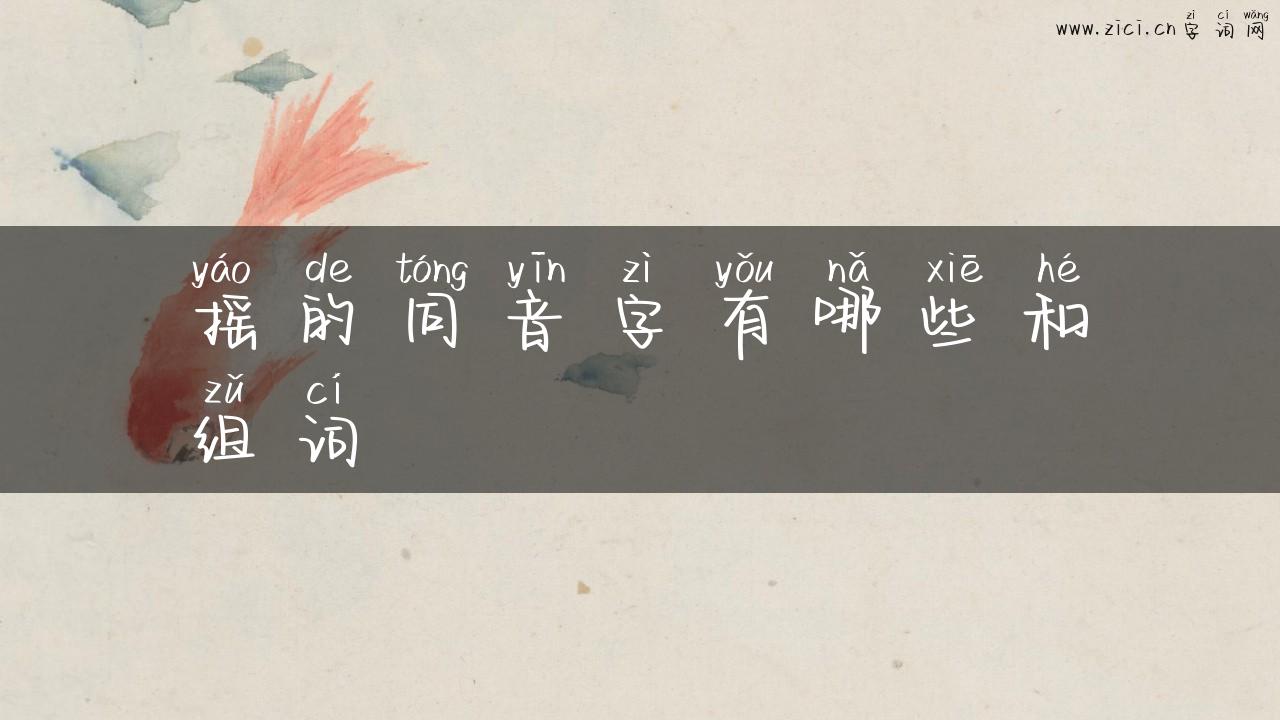 zì cí wǎng
www.zici.cn 字词网
yáo de tóng yīn zì yǒu nǎ xiē hé
摇的同音字有哪些和
zǔ cí
组词